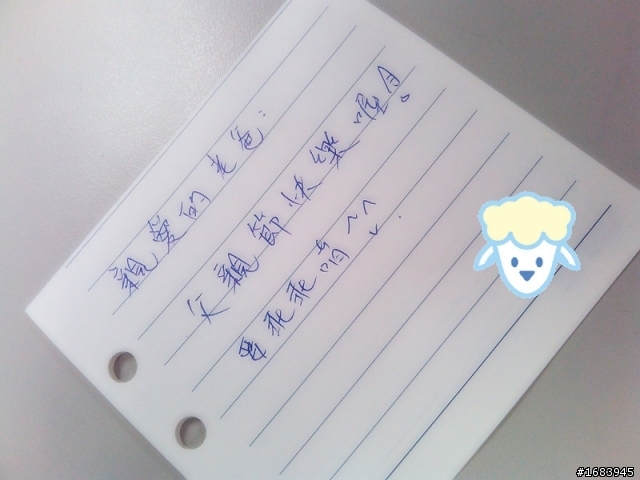 親愛的老爸：
父親節快樂喔！
要乖乖唷~^^
#1683945